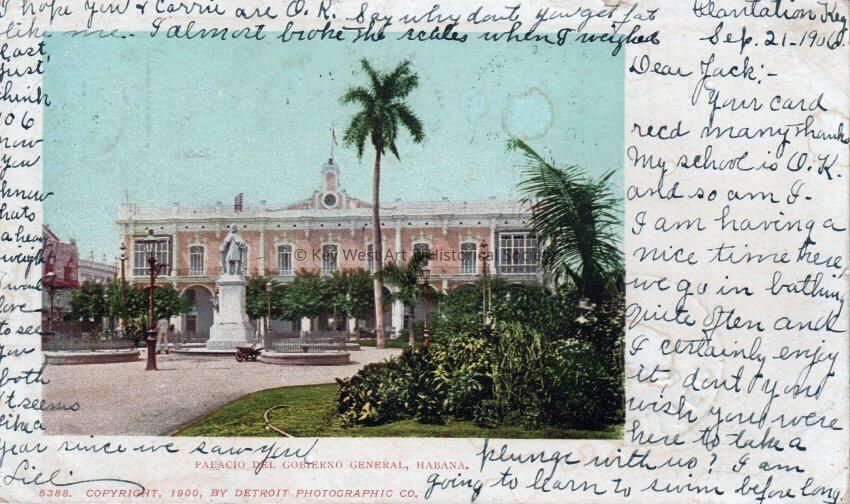 Plantation Key
Sep. 21-1906.
Dear Jack:-
Your card
recd many thanks
My school is O.K.
and so am I-
I am having a
nice time here,
we go in bathing
quite often and
I certainly enjoy
it dont you
wish you were
here to take a
plunge with us? I am
going to learn to swim before long
I hope you & Carrie are O.K. Say why dont you get fat
like me- I almost broke the scales when I weighed
last,
just
think
106
now
you
know
thats
a heavy
weight
I would
love
to see
you
both
It seems
like a
year since we saw you
Lili
© Key West Art & Historical Society
PALACIO DEL GOBIERNO GENERAL, HABANA.
5388. COPYRIGHT, 1900, BY DETROIT PHOTOGRAPHIC CO.